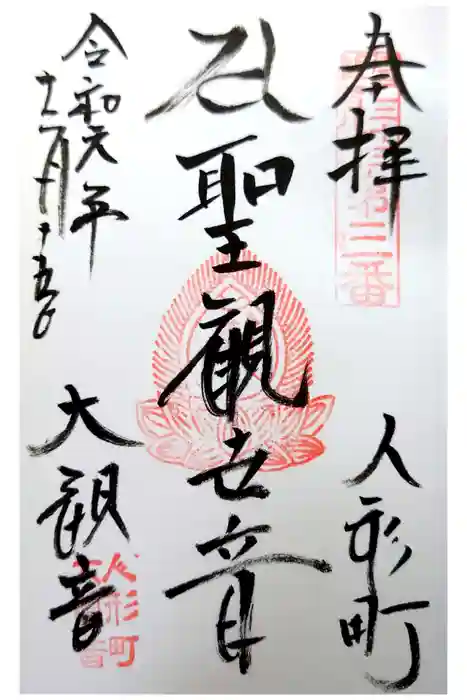 奉拝
三番
人形町
聖観世音
令和元年
十二月十五日
大観音
人形町